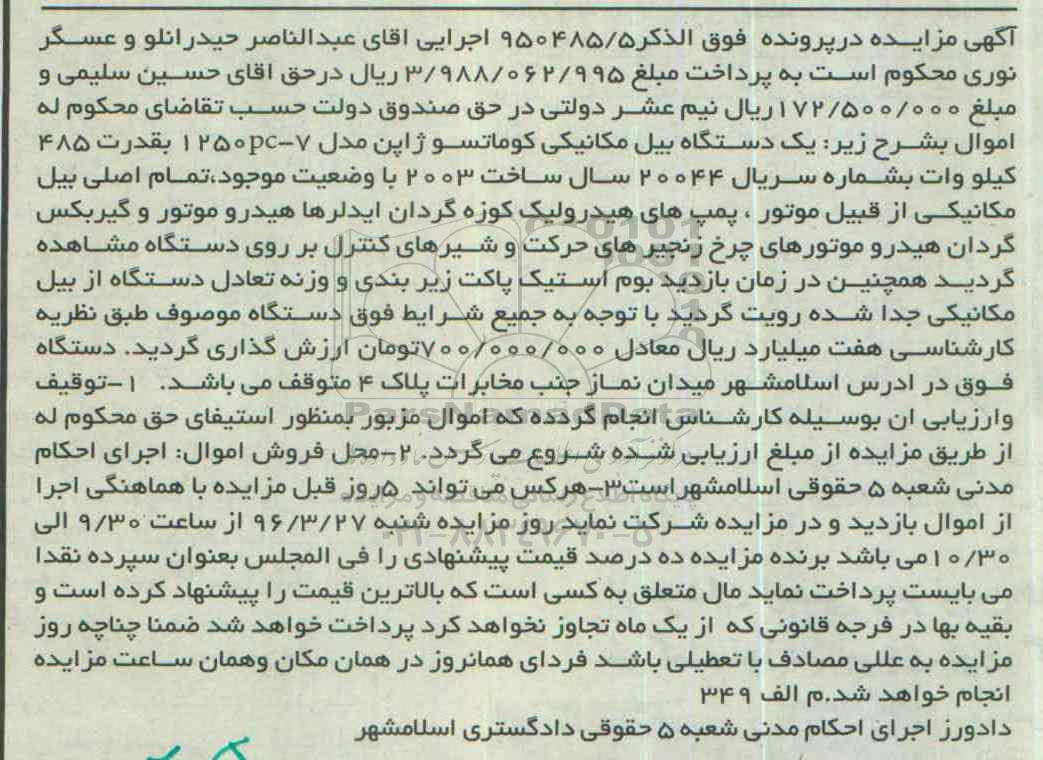 آگهی مزایده درپرونده فوق الذکر۹۵۰۴۸۵/۵ اجرایی اقای عبدالناصر حیدرانلو و عسگر
نوری محکوم است به پرداخت مبلغ ۳/۹۸۸/۰۶۲/۹۹۵ ریال درحق اقای حسین سلیمی و
مبلغ ۱۷۲/۵۰۰/۰۰۰ریال نیم عشر دولتی در حق صندوق دولت حسب تقاضای محکوم له
اموال بشرح زیر: یک دستگاه بیل مکانیکی کوماتسو ژاپن مدل ۷-pc۱۲۵۰ بقدرت ۴۸۵
کیلو وات بشماره سریال ۲۰۰۴۴ سال ساخت ۲۰۰۳ با وضعیت موجود،تمام اصلی بیل
مکانیکی از قبیل موتور ، پمپ های هیدرولیک کوزه گردان ایدلرها هیدرو موتور و گیربکس
گردان هیدرو موتورهای چرخ زنجیر های حرکت و شیرهای کنترل بر روی دستگاه مشاهده
گردید همچنین در زمان بازدید بوم استیک پاکت زیر بندی و وزنه تعادل دستگاه از بیل
مکانیکی جدا شده رویت گردید با توجه به جمیع شرایط فوق دستگاه موصوف طبق نظریه
کارشناسی هفت میلیارد ریال معادل ۷۰۰/۰۰۰/۰۰۰تومان ارزش گذاری گردید. دستگاه
فوق در ادرس اسلامشهر میدان نماز جنب مخابرات پلاک ۴ متوقف می باشد. ۱-توقیف
وارزیابی ان بوسیله کارشناس انجام گردده که اموال مزبور بمنظور استیفای حق محکوم له
از طریق مزایده از مبلغ ارزیابی شده شروع می گردد. ۲-محل فروش اموال: اجرای احکام
مدنی شعبه ۵ حقوقی اسلامشهراست۳-هرکس می تواند ۵روز قبل مزایده با هماهنگی اجرا
از اموال بازدید و در مزایده شرکت نماید روز مزایده شنبه ۹۶/۳/۲۷ از ساعت ۹/۳۰ الی
۱۰/۳۰می باشد برنده مزایده ده درصد قیمت پیشنهادی را فی المجلس بعنوان سپرده نقدا
می بایست پرداخت نماید مال متعلق به کسی است که بالاترین قیمت را پیشنهاد کرده است و
بقیه بها در فرجه قانونی که از یک ماه تجاوز نخواهد کرد پرداخت خواهد شد ضمنا چناچه روز
مزایده به عللی مصادف با تعطیلی باشد فردای همانروز در همان مکان وهمان ساعت مزایده
انجام خواهد شد.م الف ۳۴۹
دادورز اجرای احکام مدنی شعبه ۵ حقوقی دادگستری اسلامشهر
ParsNamadData
۰۲۱-۸۸۳۴۹۶۷۰-۵